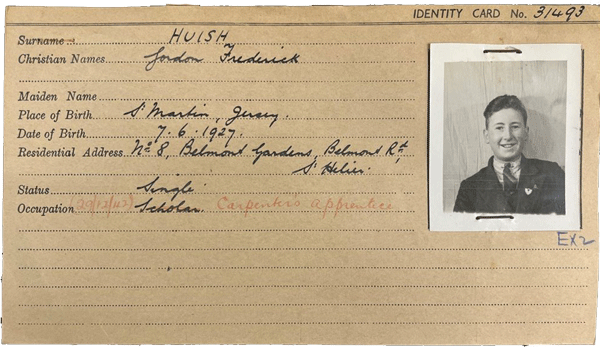 IDENTITY CARD No. 31493
Surname HUISH
Christian Names Gordon Frederick
Maiden Name
Place of Birth St Martin, Jersey.
Date of Birth 7.6.1927.
Residential Address No 8, Belmont Gardens, Belmont Rd,
St Helier.
Status Single
Occupation (29/12/42) Scholar. Carpenter's Apprentice
Ex2